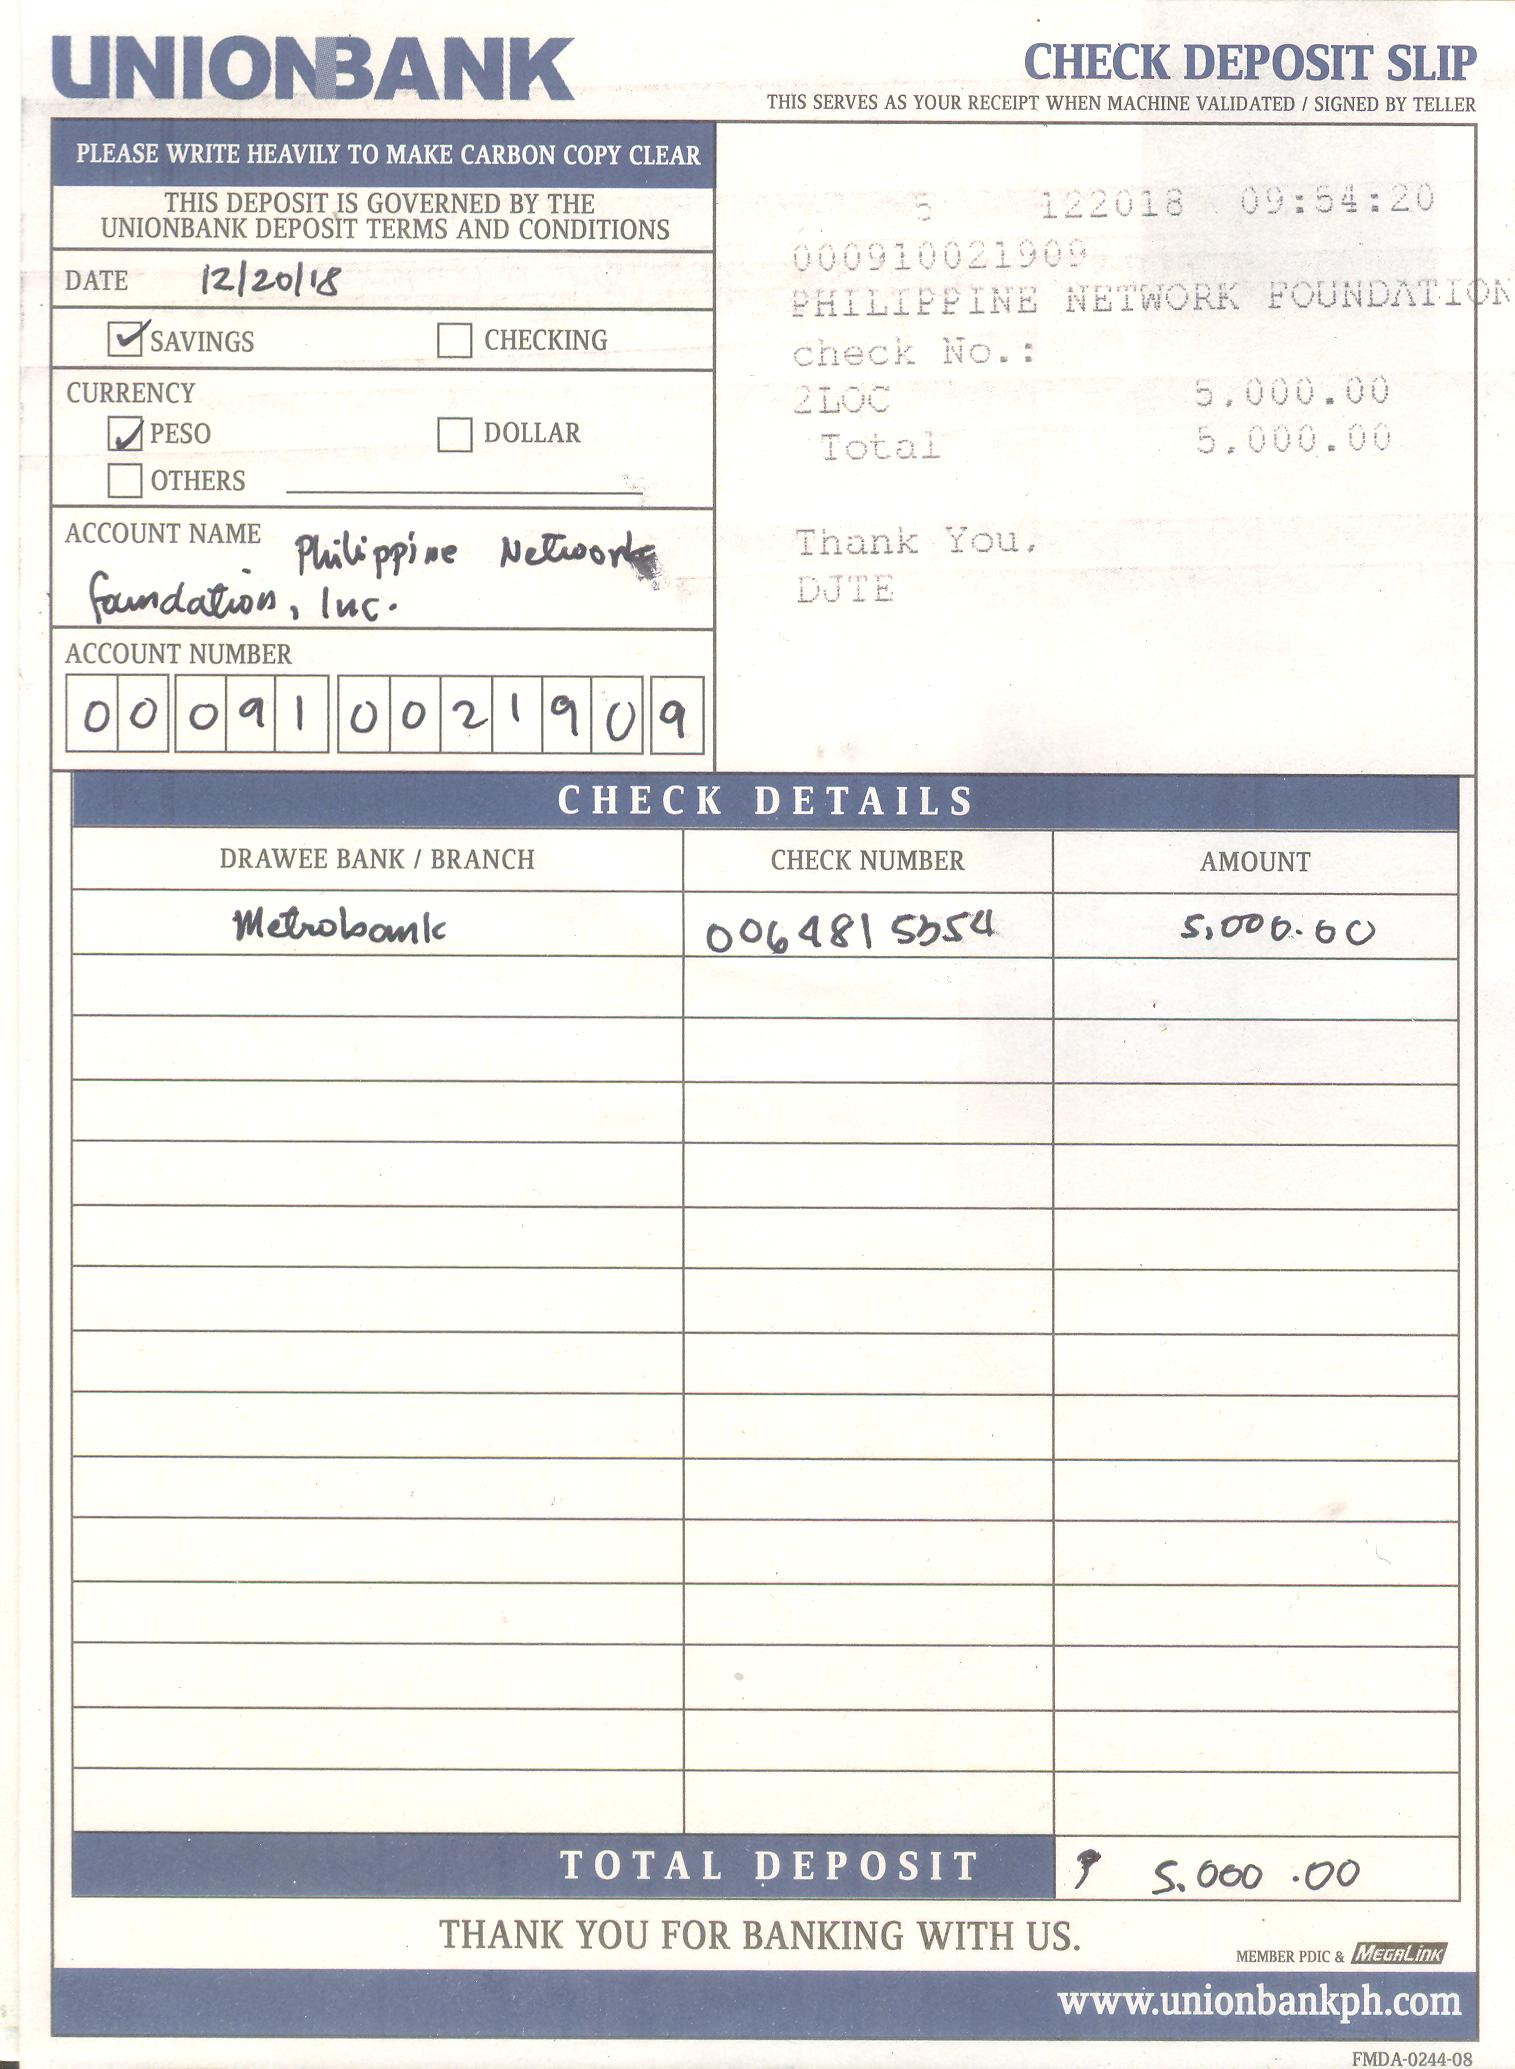 UNIONBANK
CHECK DEPOSIT SLIP
THIS SERVES AS YOUR RECEIPT WHEN MACHINE VALIDATED / SIGNED BY TELLER
PLEASE WRITE HEAVILY TO MAKE CARBON COPY CLEAR
THIS DEPOSIT IS GOVERNED BY THE
UNIONBANK DEPOSIT TERMS AND CONDITIONS
DATE 12/20/18
SAVINGS CHECKING
CURRENCY
PESO DOLLAR
OTHERS
ACCOUNT NAME Philippine Network
foundation, Inc.
ACCOUNT NUMBER
000910021909
5 122018 09:54:20
000910021909
PHILIPPINE NETWORK FOUNDATION
check No.:
2LOC 5,000.00
Total 5,000.00
Thank You,
DJTE
CHECK DETAILS
DRAWEE BANK / BRANCH CHECK NUMBER AMOUNT
Metrobank 0064815554 5,000.00
TOTAL DEPOSIT ₱ 5,000.00
THANK YOU FOR BANKING WITH US.
MEMBER PDIC & MEGALINK
www.unionbankph.com
FMDA-0244-08